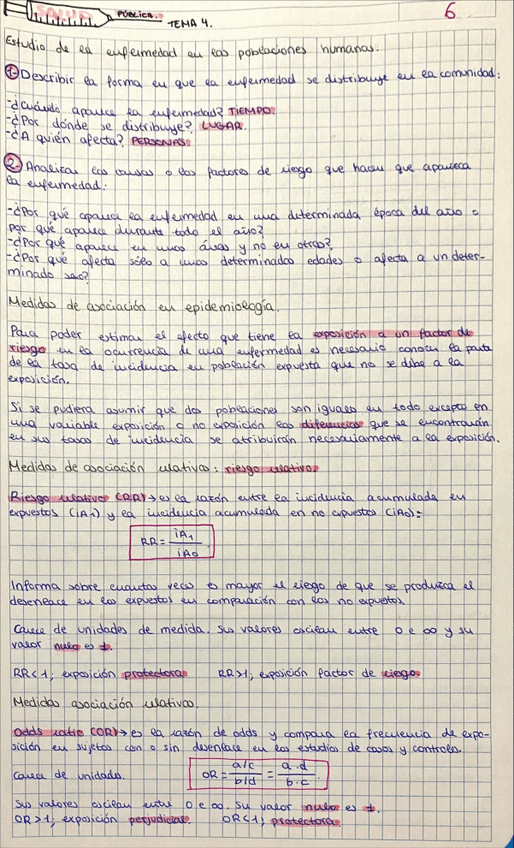 SALUD PÚBLICA. TEMA 4. 6
Estudio de la enfermedad en las poblaciones humanas.
1. Describir la forma en que la enfermedad se distribuye en la comunidad:
-¿Cuándo aparece la enfermedad? TIEMPO.
-¿Por dónde se distribuye? LUGAR.
-¿A quién afecta? PERSONAS.
2. Analizar las causas o los factores de riesgo que hacen que aparezca
la enfermedad:
-¿Por qué aparece la enfermedad en una determinada época del año o
por qué aparece durante todo el año?
-¿Por qué aparece en unas áreas y no en otras?
-¿Por qué afecta sólo a unas determinadas edades o afecta a un deter-
minado sexo?
Medidas de asociación en epidemiología.
Para poder estimar el efecto que tiene la exposición a un factor de
riesgo en la ocurrencia de una enfermedad es necesario conocer la parte
de la tasa de incidencia en población expuesta que no se debe a la
exposición.
Si se pudiera asumir que dos poblaciones son iguales en todo excepto en
una variable exposición o no exposición las diferencias que se encontrarán
en sus tasas de incidencia se atribuirán necesariamente a la exposición.
Medidas de asociación relativas: riesgo relativo.
Riesgo relativo (RR)→ es la razón entre la incidencia acumulada en
expuestos (iA1) y la incidencia acumulada en no expuestos (iA0):
RR = iA1 / iA0.
Informa sobre cuantas veces es mayor el riesgo de que se produzca el
desenlace en los expuestos en comparación con los no expuestos.
Carece de unidades de medida. Sus valores oscilan entre 0 e ∞ y su
valor nulo es 1.
RR<1; exposición protectora RR>1; exposición factor de riesgo.
Medidas asociación relativas.
Odds ratio (OR)→ es la razón de odds y compara la frecuencia de expo-
sición en sujetos con o sin desenlace en los estudios de casos y controles.
Carece de unidades. OR = a/c / b/d = a·d / b·c.
Sus valores oscilan entre 0 e ∞. Su valor nulo es 1.
OR>1; exposición perjudicial. OR<1; protectora.